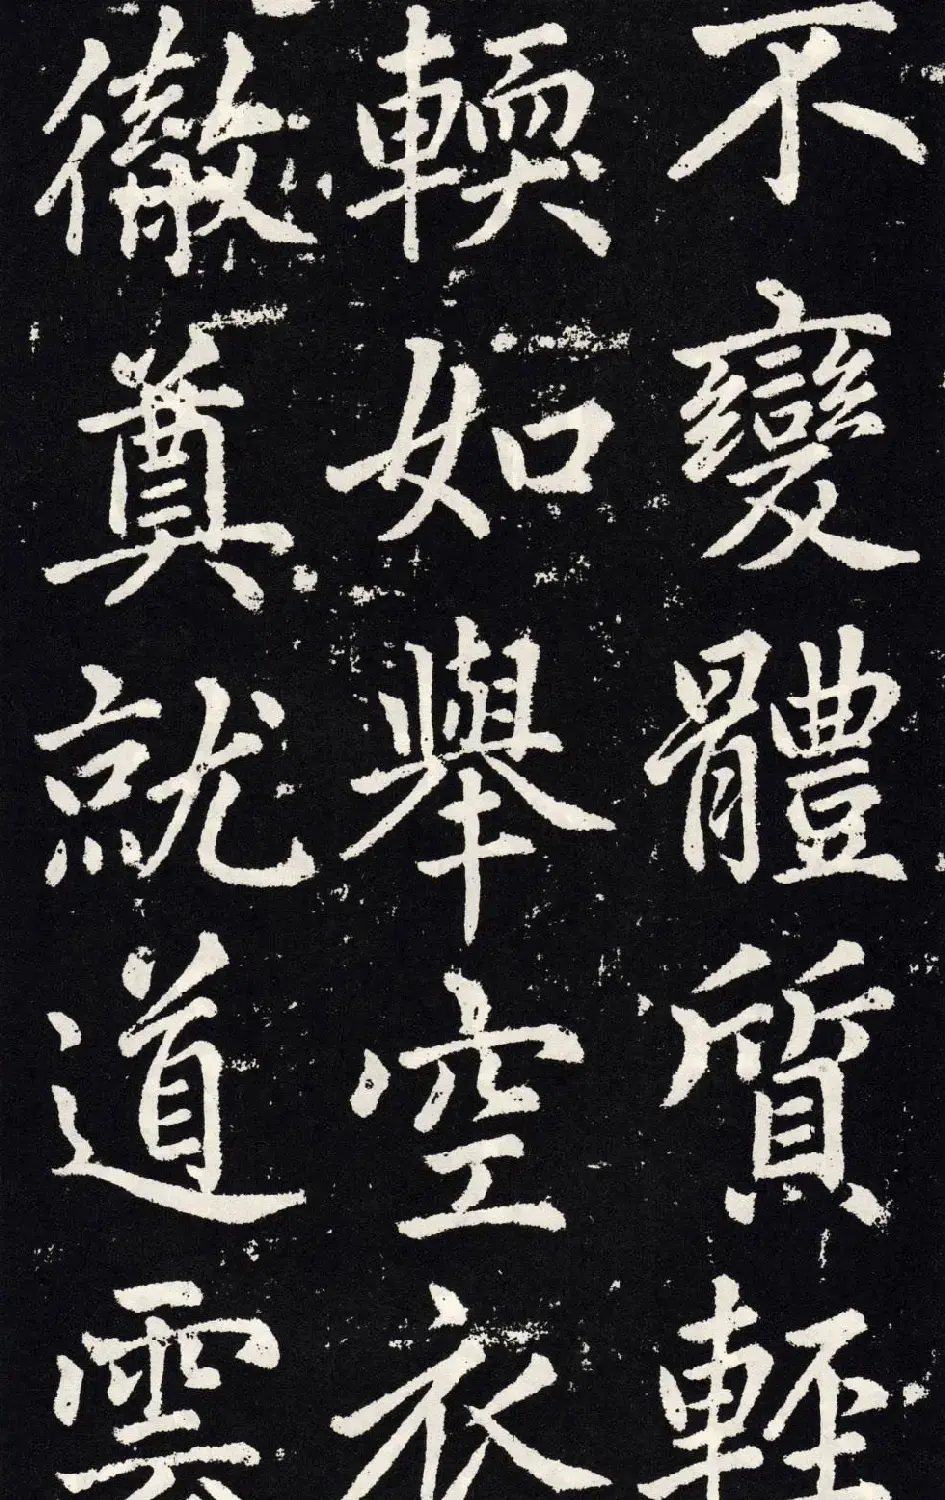 不變體質輕
輭如舉空衣
徹奠就道雲